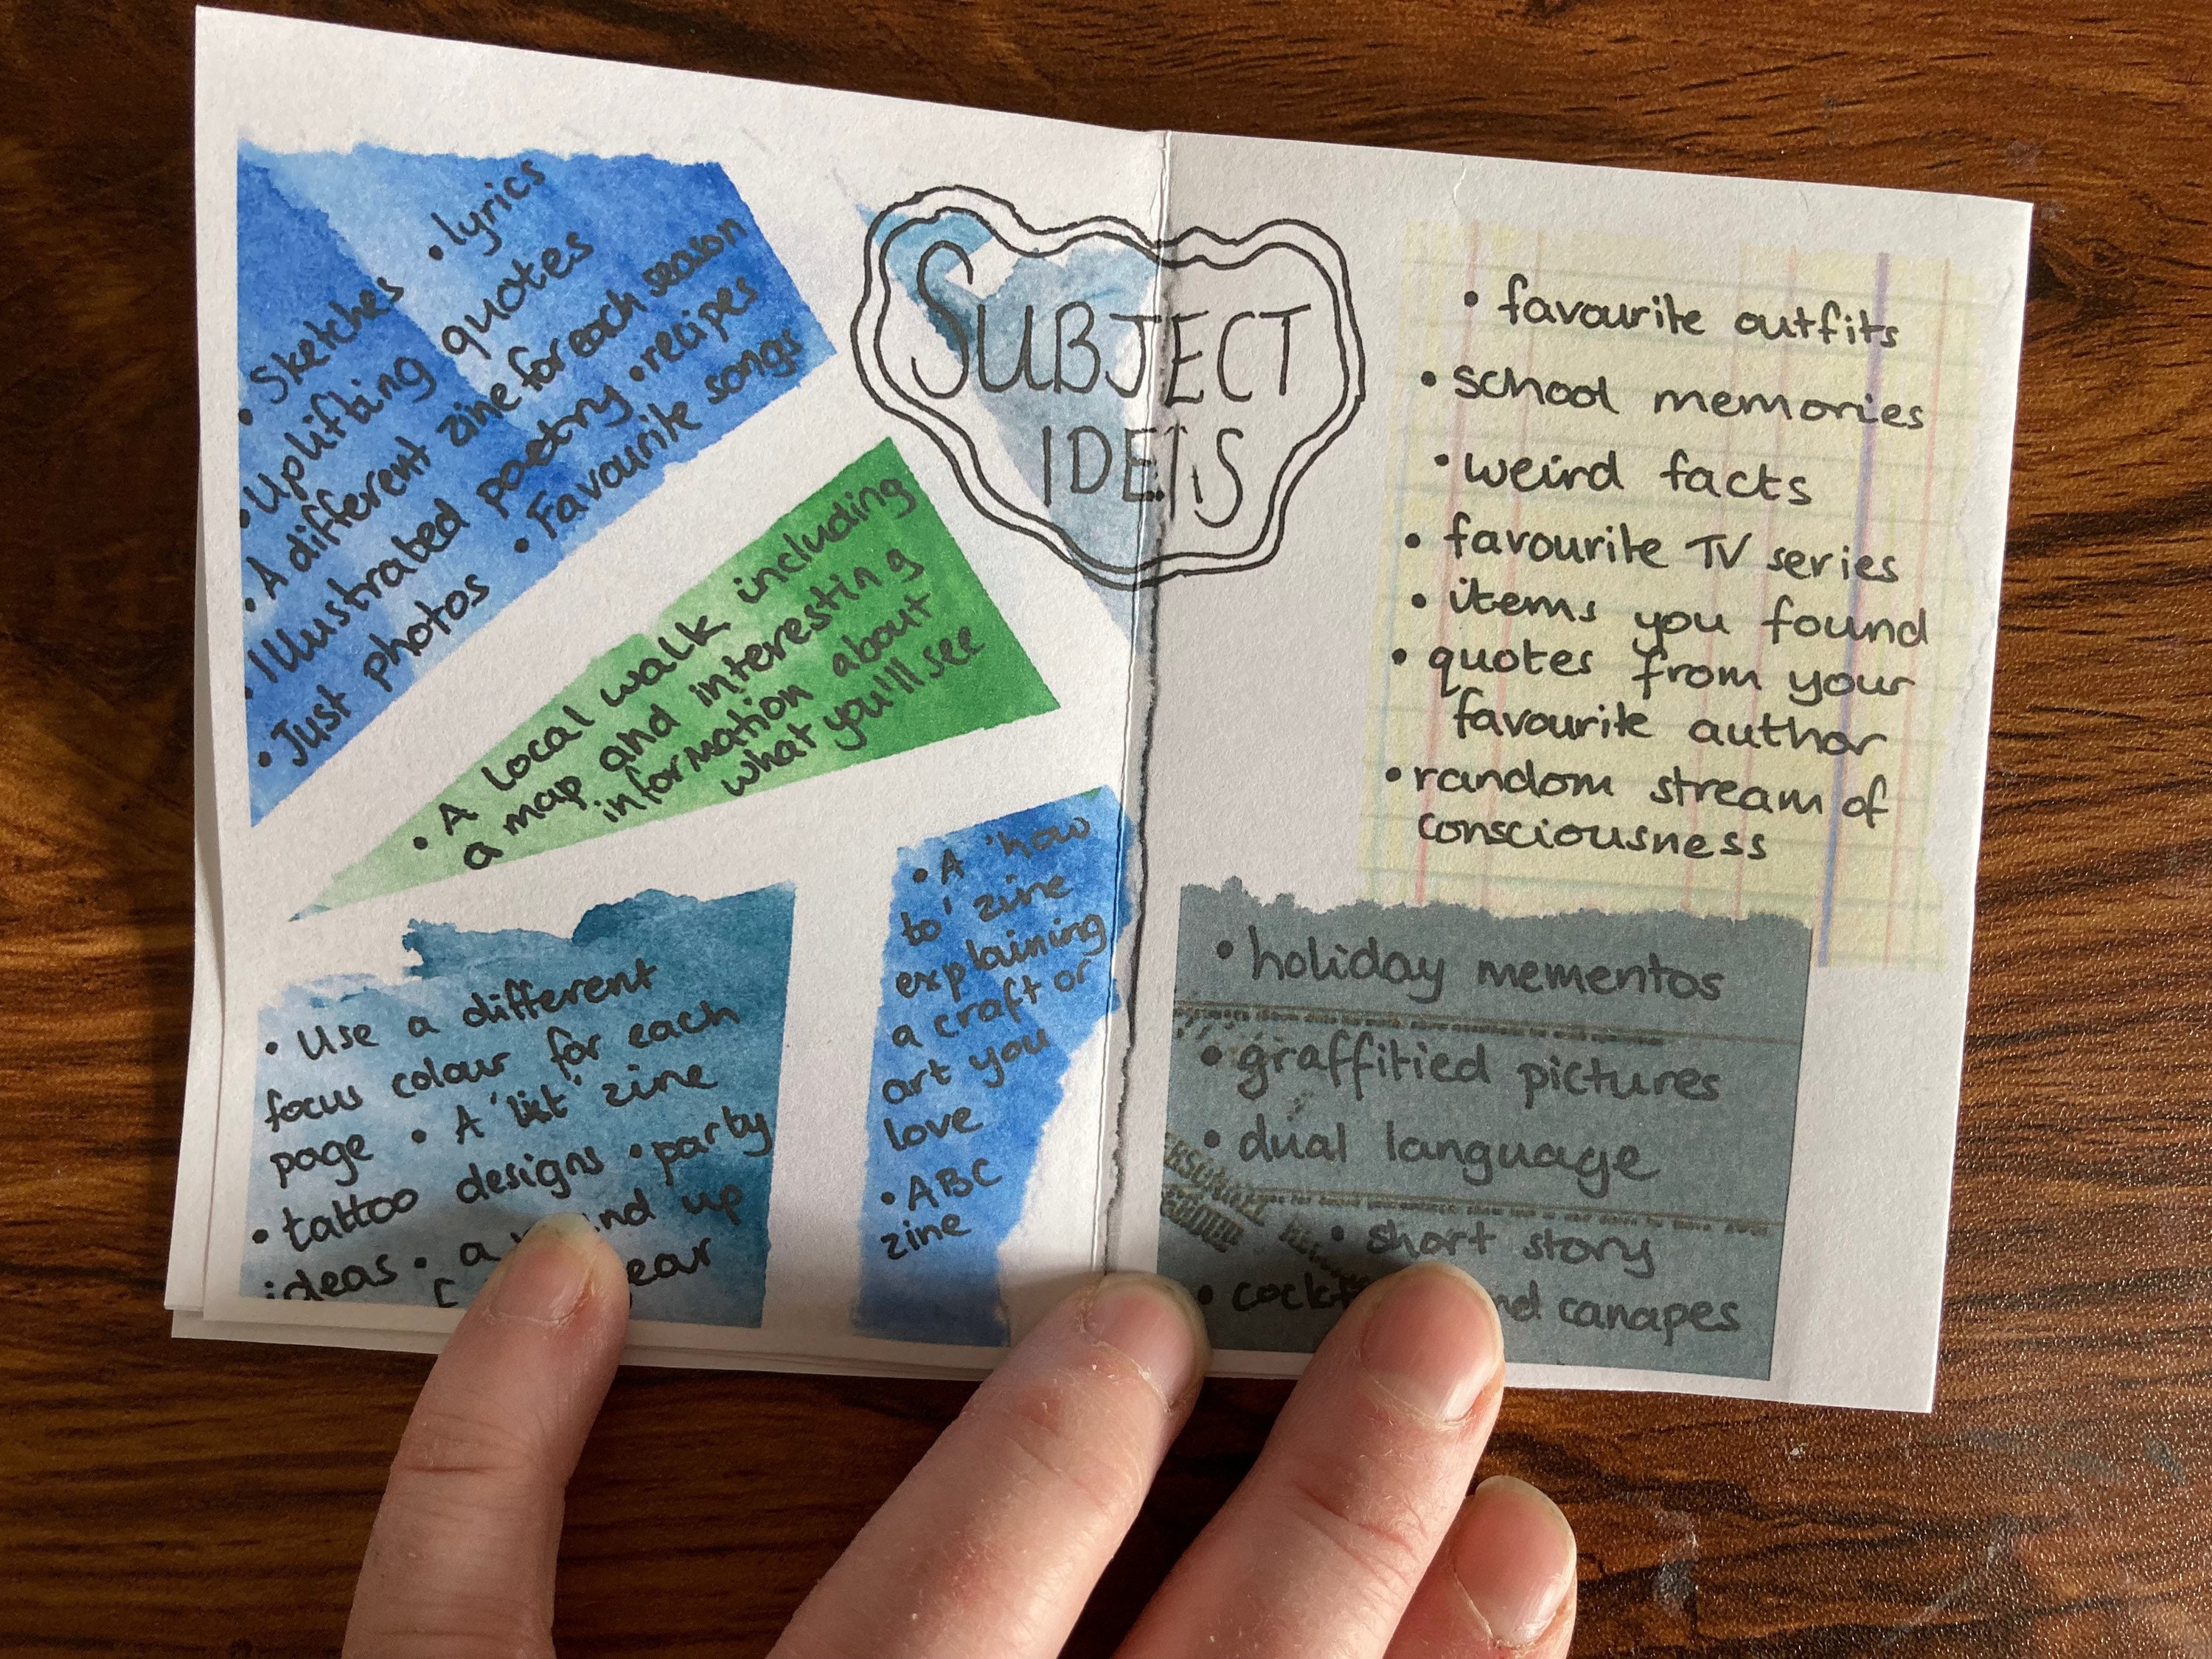 SUBJECT
IDEAS
• Sketches • lyrics
• Uplifting quotes
• A different zine for each season
• Illustrated poetry • recipes
• Just photos • Favourite songs
• A local walk including
a map and interesting
information about
what you'll see
• Use a different
focus colour for each
page • A 'list' zine
• tattoo designs • party
ideas • a up
• A 'how
to' zine
explaining
a craft or
art you
love
• ABC
zine
• favourite outfits
• school memories
• weird facts
• favourite TV series
• items you found
• quotes from your
favourite author
• random stream of
consciousness
• holiday mementos
• graffitied pictures
• dual language
• short story
• canapes